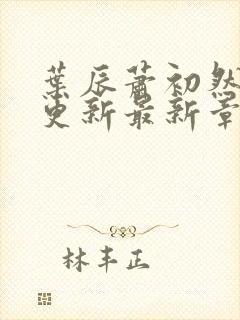 葉辰蕭初然
更新最新章
林丰正